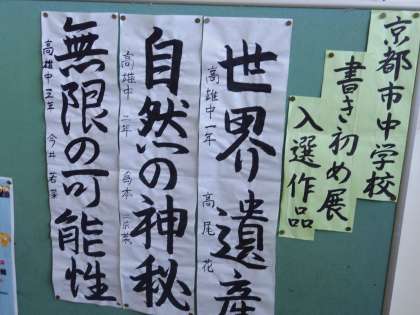 京都市中学校
書き初め展
入選作品
世界遺産
高雄中一年 高尾 花
自然の神秘
高雄中 二年
無限の可能性
高雄中 三年 今井 若菜